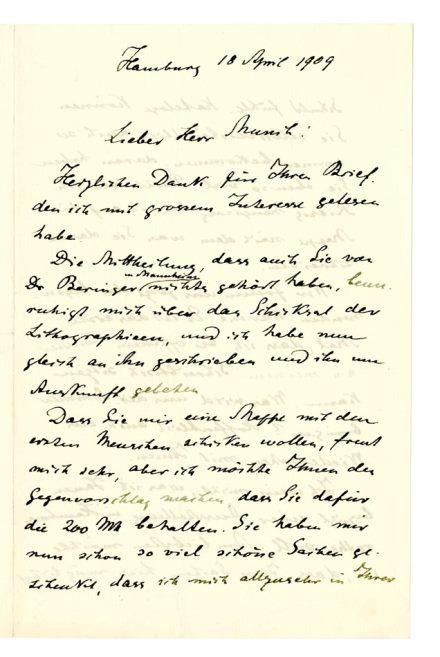 Hamburg 18 April 1909
Lieber Herr Munch!
Herzlichen Dank für Ihren Brief.
den ich mit grossem Interesse gelesen
habe.
Die Mittheilung, dass auch Sie von
in Mannheim
Dr Beringer nichts gehört haben, beun-
ruhigt mich über das Schicksal der
Lithographieen, und ich habe nun
gleich an ihn geschrieben und ihn um
Auskunft gebeten
Dass Sie mir eine Mappe mit den
ersten Menschen schicken wollen, freut
mich sehr, aber ich möchte Ihnen den
Gegenvorschlag machen, dass Sie dafür
die 200 Mk behalten. Sie haben mir
nun schon so viel schöne Sachen ge-
schenkt, dass ich mich allzusehr in Ihrer